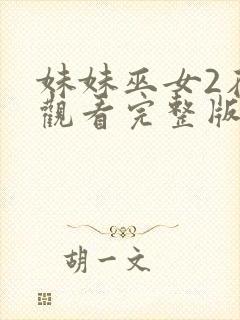 妹妹巫女2
觀看完整版
胡一文